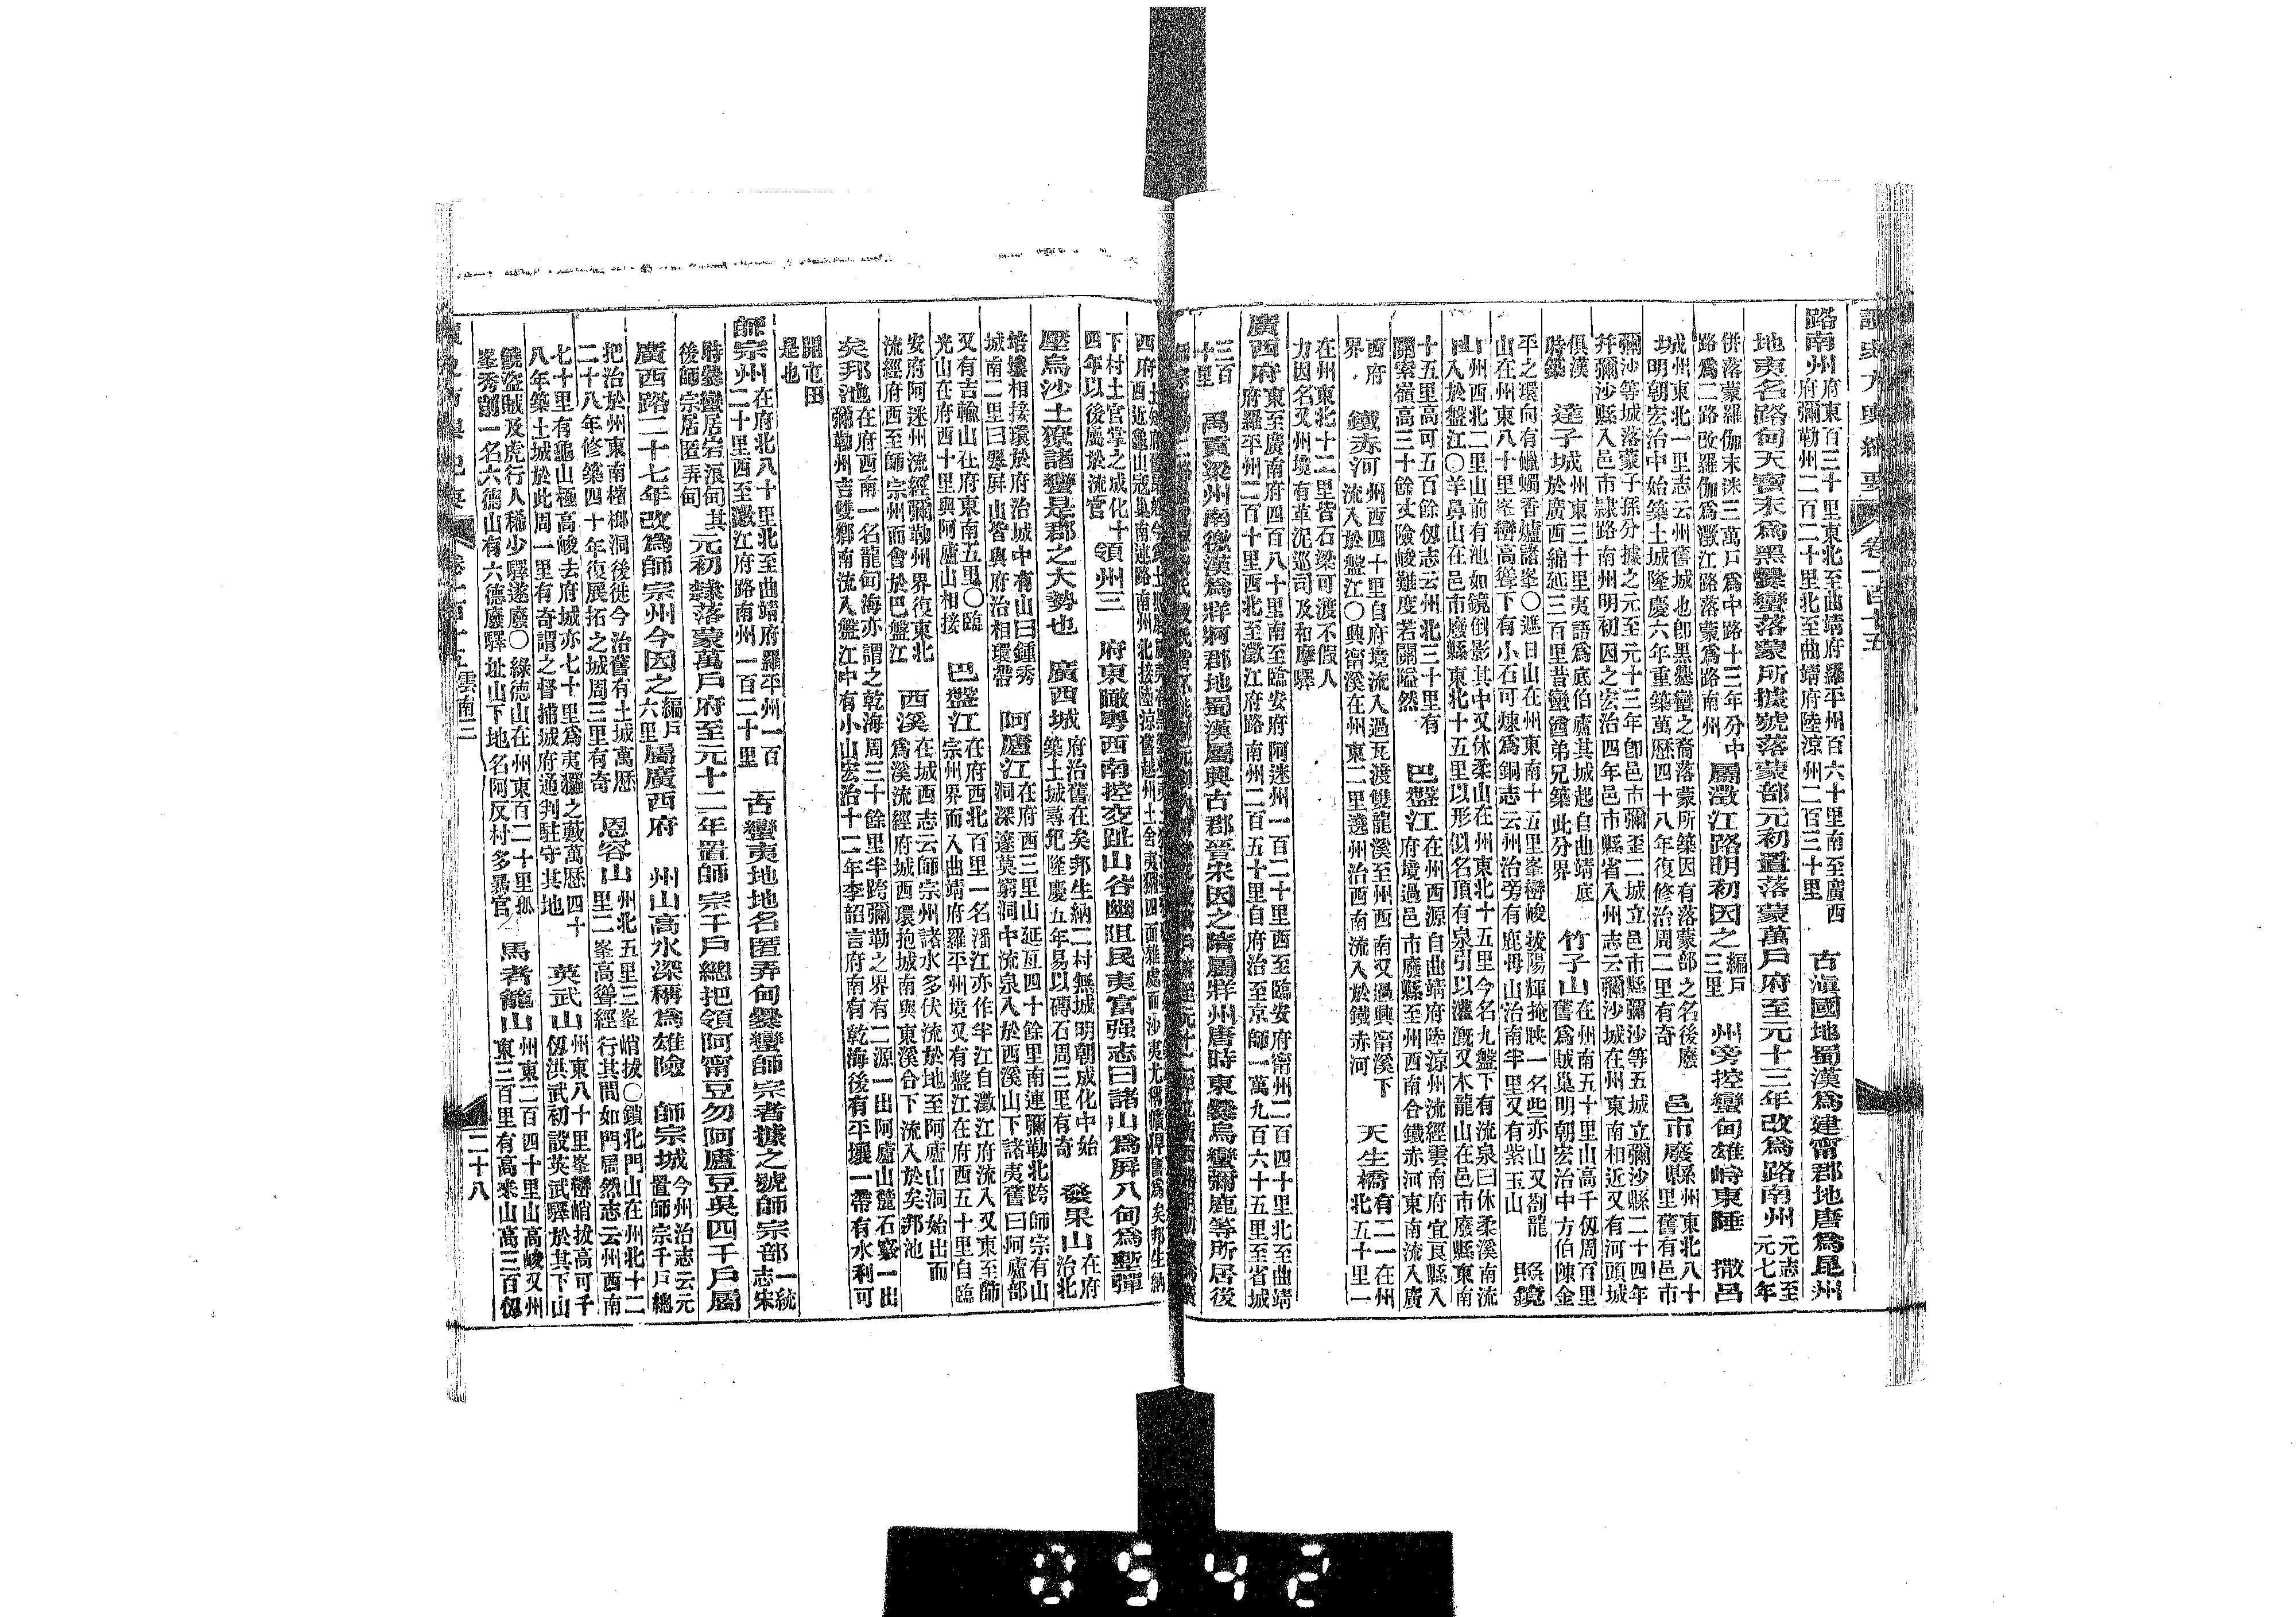 讀史方輿紀要 卷一百十五
路南州府東百三十里東北至曲靖府羅平州百六十里南至廣西
府彌勒州二百二十里北至曲靖府陸涼州二百三十里
古滇國地蜀漢爲建甯郡地唐爲昆州
地夷名路甸天寶末爲黑爨蠻落蒙所據號落蒙部元初置落蒙萬戶府至元十三年改爲路南州元志至
元七年
併落蒙羅伽末迷三萬戶爲中路十三年分中
路爲二路改羅伽爲澂江路落蒙爲路南州
屬澂江路明初因之編戶
三里
州旁控蠻甸雄峙東陲 撒呂
城州東北一里志云州舊城也卽黑爨蠻之裔落蒙所築因有落蒙部之名後廢
明朝宏治中始築土城隆慶六年重築萬歷四十八年復修治周二里有奇
邑市廢縣州東北八十
里舊有邑市
彌沙等城落蒙子孫分據之元至元十三年卽邑市彌歪二城立邑市縣彌沙等五城立彌沙縣二十四年
幷彌沙縣入邑市隸路南州明初因之宏治四年邑市縣省入州志云彌沙城在州東南相近又有河頭城
俱漢
時築
達子城州東三十里夷語爲底伯盧其城起自曲靖底
於廣西綿延三百里昔蠻酋弟兄築此分界
竹子山在州南五十里山高千仭周百里
舊爲賊巢明朝宏治中方伯陳金
平之環向有蠟蠋香爐諸峯〇遮日山在州東南十五里峯巒峻拔陽輝掩映一名些亦山又劄龍
山在州東八十里峯巒高聳下有小石可煉爲銅志云州治旁有鹿毋山治南半里又有紫玉山
照鏡
山州西北二里山前有池如鏡倒影其中又休柔山在州東北十五里今名九盤下有流泉曰休柔溪南流
入於盤江〇羊鼻山在邑市廢縣東北十五里以形似名頂有泉引以灌漑又木龍山在邑市廢縣東南
十五里高可五百餘仭志云州北三十里有
關索嶺高三十餘丈險峻難度若關隘然
巴盤江在州西源自曲靖府陸涼州流經雲南府宜良縣入
府境過邑市廢縣至州西南合鐵赤河東南流入廣
西府
界
鐵赤河州西四十里自府境流入過瓦渡雙龍溪至州西南又過興甯溪下
流入於盤江〇興甯溪在州東二里遶州治西南流入於鐵赤河
天生橋有二一在州
北五十里一
在州東北十二里皆石梁可渡不假人
力因名又州境有革泥巡司及和摩驛
廣西府東至廣南府四百八十里南至臨安府阿迷州一百二十里西至臨安府甯州二百四十里北至曲靖
府羅平州二百十里西北至澂江府路南州二百五十里自府治至京師一萬九百六十五里至省城
三百
十里
禹貢梁州南徼漢爲牂牁郡地蜀漢屬興古郡晉宋因之隋屬牂州唐時東爨烏蠻彌鹿等所居後
西府西近龜山寇巢南連路南州北接陸涼舊越州土舍夷玀四面雜處而沙夷尤稱獷悍舊爲矣邦生納
下村土官掌之成化十
四年以後屬於流官
領州三 府東瞰粤西南控交趾山谷幽阻民夷富强志曰諸山爲屏八甸爲塹彈
壓烏沙土獠諸蠻是郡之大勢也 廣西城府治舊在矣邦生納二村無城明朝成化中始
築土城尋圯隆慶五年易以磚石周三里有奇
發果山在府
治北
培壤相接環於府治城中有山曰鍾秀
城南二里曰翠屏山皆與府治相環帶
阿廬江在府西三里山延亙四十餘里南連彌勒北跨師宗有山
洞深邃莫窮洞中流泉入於西溪山下諸夷舊曰阿廬部
又有吉輸山在府東南五里〇臨
光山在府西十里與阿廬山相接
巴盤江在府西北百里一名潘江亦作半江自澂江府流入又東至師
宗州界而入曲靖府羅平州境又有盤江在府西五十里自臨
安府阿迷州流經彌勒州界復東北
流經府西至師宗州而會於巴盤江
西溪在城西志云師宗州諸水多伏流於地至阿廬山洞始出而
爲溪流經府城西環抱城南與東溪合下流入於矣邦池
矣邦池在府西南一名龍甸海亦謂之乾海周三十餘里半跨彌勒之界有二源一出阿廬山麓石竅一出
彌勒州吉雙鄉南流入盤江中有小山宏治十二年李韶言府南有乾海後有平壤一帶有水利可
開屯田
是也
師宗州在府北八十里北至曲靖府羅平州一百
二十里西至澂江府路南州一百二十里
古蠻夷地地名匿弄甸爨蠻師宗者據之號師宗部一統
志宋
時爨蠻居岩浪甸其
後師宗居匿弄甸
元初隸落蒙萬戶府至元十二年置師宗千戶總把領阿甯豆勿阿廬豆吳四千戶屬
廣西路二十七年改爲師宗州今因之編戶
六里
屬廣西府 州山高水深稱爲雄險 師宗城今州治志云元
置師宗千戶總
把治於州東南櫧榔洞後徙今治舊有土城萬歷
二十八年修築四十年復展拓之城周三里有奇
恩容山州北五里三峯峭拔〇鎖北門山在州北十二
里二峯高聳經行其間如門扃然志云州西南
七十里有龜山極高峻去府城亦七十里爲夷玀之藪萬歷四十
八年築土城於此周一里有奇謂之督捕城府通判駐守其地
英武山州東八十里峯巒峭拔高可千
仭洪武初設英武驛於其下山
饒盜賊及虎行人稀少驛遂廢〇綠德山在州東百二十里孤
峯秀削一名六德山有六德廢驛址山下地名阿反村多暴官
馬者籠山州東二百四十里山高峻又州
東三百里有高米山高三百仭
讀史方輿紀要 卷一百十五 雲南三 二十八
0542